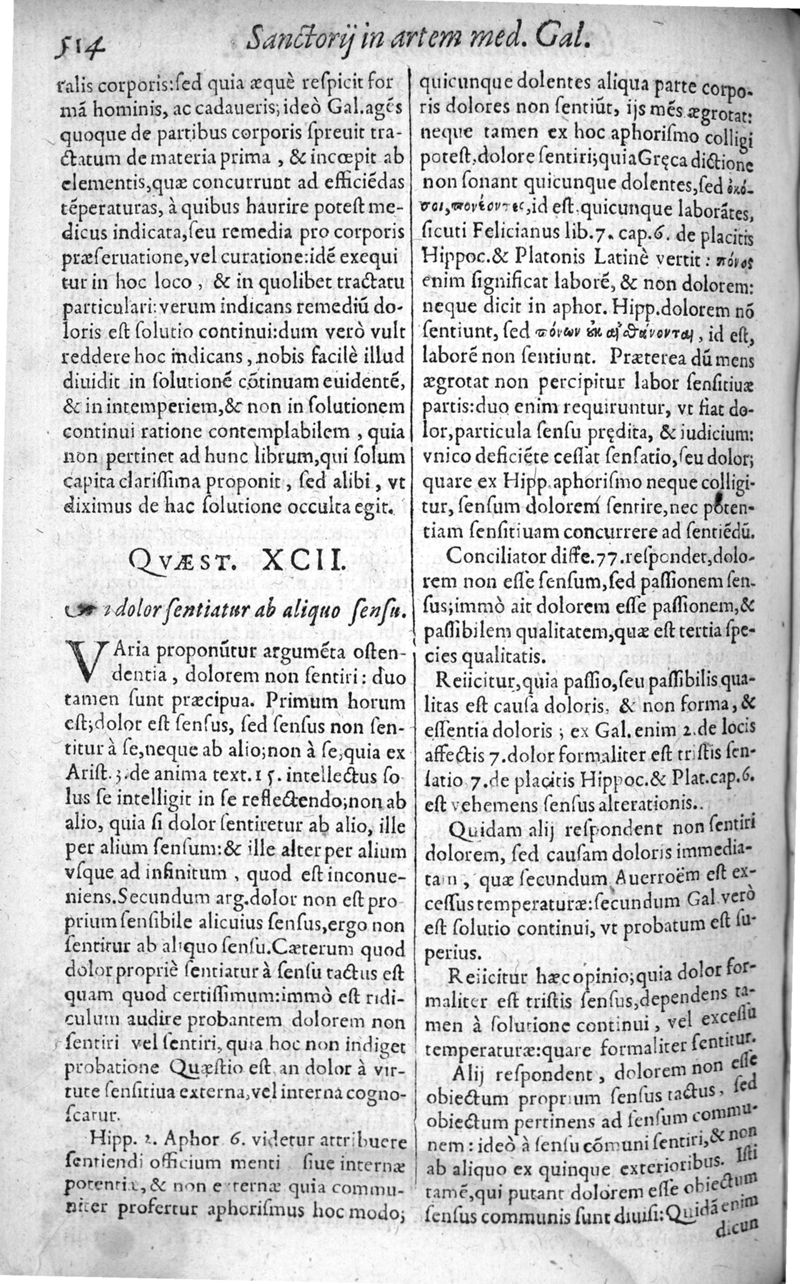 514 Sanctorij in artem med. Gal.
ralis corporis:ſed quia æquè reſpicit for
mã hominis, ac cadaueris; ideò Gal.agẽs
quoque de partibus corporis ſpreuit tra-
ctatum de materia prima , & incœpit ab
elementis,quæ concurrunt ad efficiẽdas
tẽperaturas, à quibus haurire poteſt me-
dicus indicata,ſeu remedia pro corporis
præſeruatione,vel curatione:idẽ exequi
tur in hoc loco , & in quolibet tractatu
particulari: verum indicans remediũ do-
loris eſt ſolutio continui:dum verò vult
reddere hoc indicans , nobis facilè illud
diuidit in ſolutionẽ cõtinuam euidentẽ,
& in intemperiem,& non in ſolutionem
continui ratione contemplabilem , quia
non pertinet ad hunc librum,qui ſolum
capita clariſſima proponit , ſed alibi , vt
diximus de hac ſolutione occulta egit.
QVÆST. XCII.
dolor ſentiatur ab aliquo ſenſu.
VAria proponũtur argumẽta oſten-
dentia , dolorem non ſentiri : duo
tamen ſunt præcipua. Primum horum
eſt;dolor eſt ſenſus, ſed ſenſus non ſen-
titur à ſe,neque ab alio;non à ſe,quia ex
Ariſt. 3.de anima text.15. intellectus ſo
lus ſe intelligit in ſe reflectendo;non ab
alio, quia ſi dolor ſentiretur ab alio, ille
per alium ſenſum:& ille alter per alium
vſque ad infinitum , quod eſt inconue-
niens.Secundum arg.dolor non eſt pro
prium ſenſibile alicuius ſenſus,ergo non
ſentitur ab aliquo ſenſu.Cæterum quod
dolor propriè ſentiatur à ſenſu tactus eſt
quam quod certiſſimum:immò eſt ridi-
culum audire probantem dolorem non
ſentiri vel ſentiri, quia hoc non indiget
probatione Quæſtio eſt an dolor à vir-
tute ſenſitiua externa,vel interna cogno-
ſcatur.
Hipp. 2. Aphor 6. videtur attribuere
ſentiendi officium menti ſiue internæ
potentiæ, & non externæ quia commu-
niter profertur aphoriſmus hoc modo;
quicunque dolentes aliqua parte corpo-
ris dolores non ſentiũt, ijs mẽs ægrotat:
neque tamen ex hoc aphoriſmo colligi
poteſt,dolore ſentiri;quia Gręca dictione
non ſonant quicunque dolentes,ſed ὁκό-
σοι,πονέοντες,id eſt,quicunque laborãtes,
ſicuti Felicianus lib.7. cap.6. de placitis
Hippoc.& Platonis Latinè vertit : πόνος
enim ſignificat laborẽ, & non dolorem:
neque dicit in aphor. Hipp.dolorem nõ
ſentiunt, ſed πόνων ἐκ αἰσθάνονται, id eſt,
laborẽ non ſentiunt. Præterea dũ mens
ægrotat non percipitur labor ſenſitiuæ
partis:duo enim requiruntur, vt fiat do-
lor,particula ſenſu prędita, & iudicium:
vnico deficiẽte ceſſat ſenſatio,ſeu dolor;
quare ex Hipp.aphoriſmo neque colligi-
tur, ſenſum dolorem ſentire,nec poten-
tiam ſenſitiuam concurrere ad ſentiẽdũ.
Conciliator diffe.77.reſpondet,dolo-
rem non eſſe ſenſum,ſed paſſionem ſen-
ſus;immò ait dolorem eſſe paſſionem,&
paſſibilem qualitatem,quæ eſt tertia ſpe-
cies qualitatis.
Reijcitur,quia paſſio,ſeu paſſibilis qua-
litas eſt cauſa doloris, & non forma, &
eſſentia doloris ; ex Gal.enim 2.de locis
affectis 7.dolor formaliter eſt triſtis ſen-
ſatio 7.de placitis Hippoc.& Plat.cap.6.
eſt vehemens ſenſus alterationis..
Quidam alij reſpondent non ſentiri
dolorem, ſed cauſam doloris immedia-
tam , quæ ſecundum Auerroëm eſt ex-
ceſſus temperaturæ:ſecundum Gal verò
eſt ſolutio continui, vt probatum eſt ſu-
perius.
Reijcitur hæc opinio;quia dolor for-
maliter eſt triſtis ſenſus,dependens ta-
men à ſolutione continui , vel exceſſu
temperaturæ:quare formaliter ſentitur.
Alij reſpondent , dolorem non eſſe
obiectum proprium ſenſus tactus, ſed
obiectum pertinens ad ſenſum commu-
nem : ideò à ſenſu cõmuni ſentiri,& non
ab aliquo ex quinque exterioribus. Iſti
tamẽ,qui putant dolorem eſſe obiectum
ſenſus communis ſunt diuiſi:Quidã enim
dicun